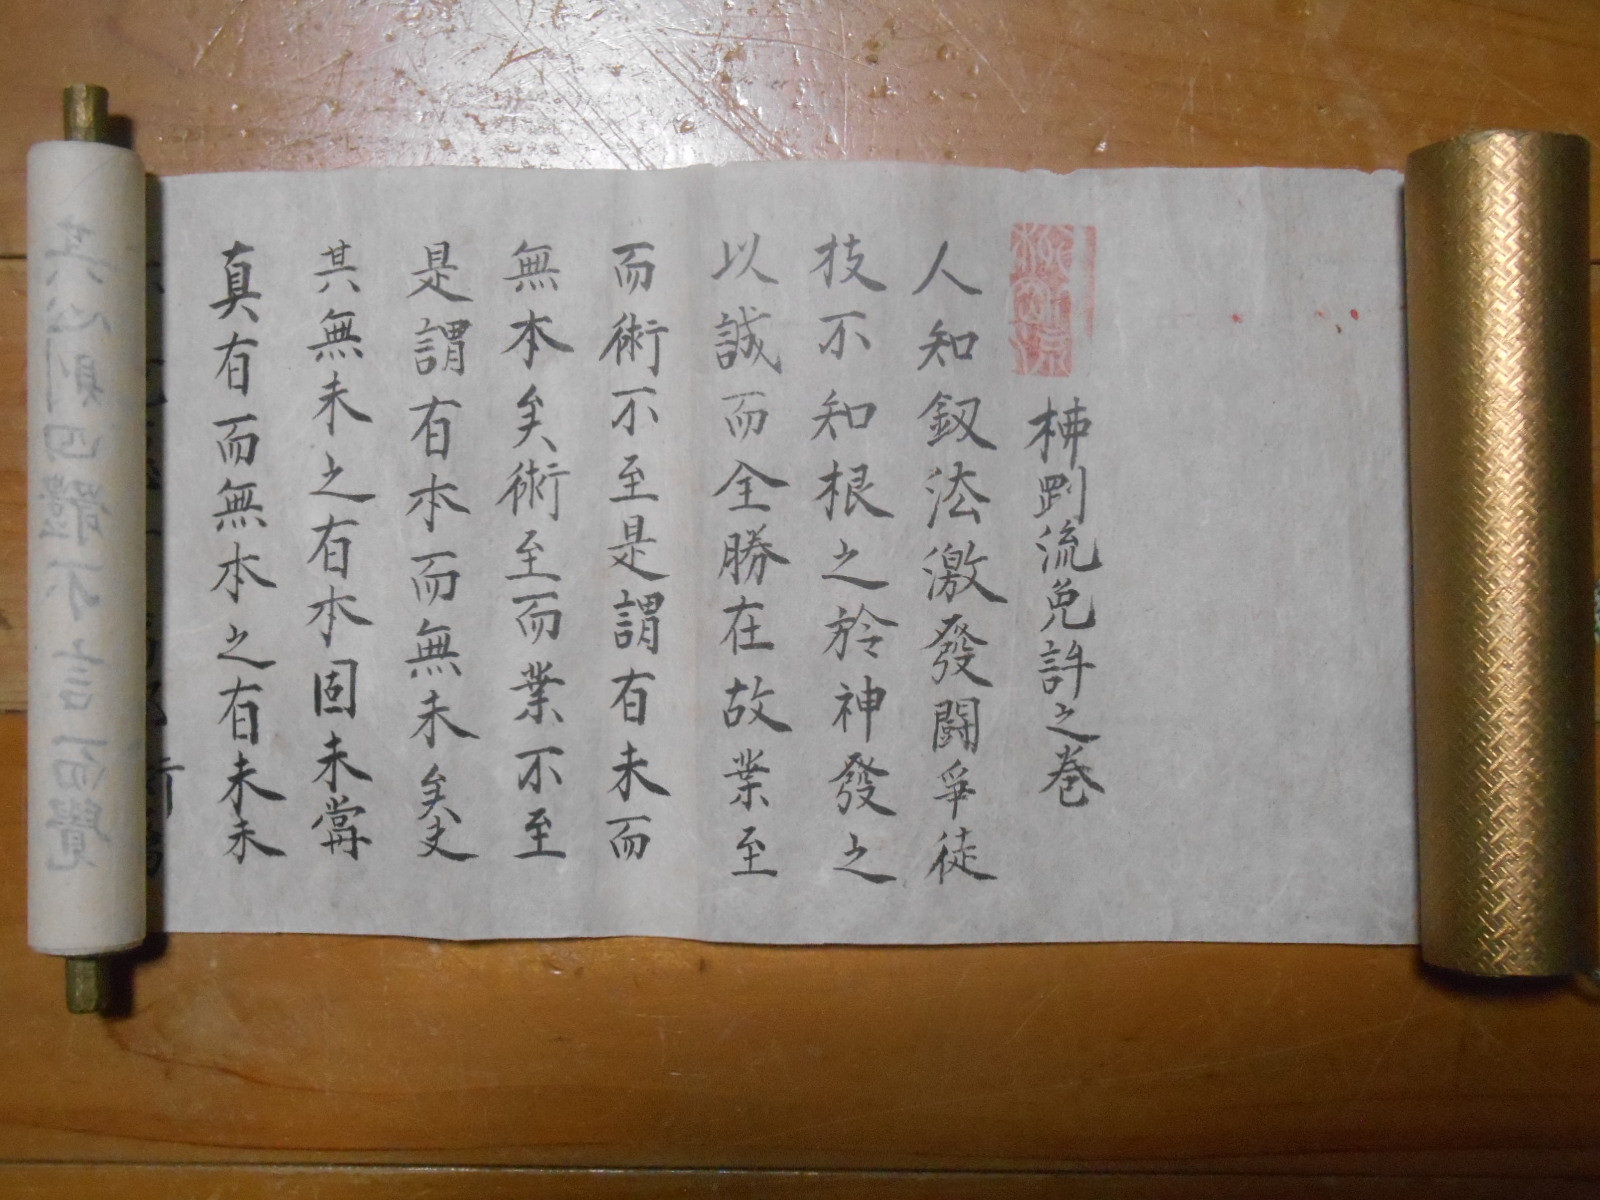 柫剛流免許之巻
人知釼法激發闘爭徒
技不知根之於神發之
以誠而全勝在故業至
而術不至是謂有末而
無本矣術至而業不至
是謂有本而無末矣夫
其無末之有本固未嘗
真有而無本之有末未
其心則四體不言而覺